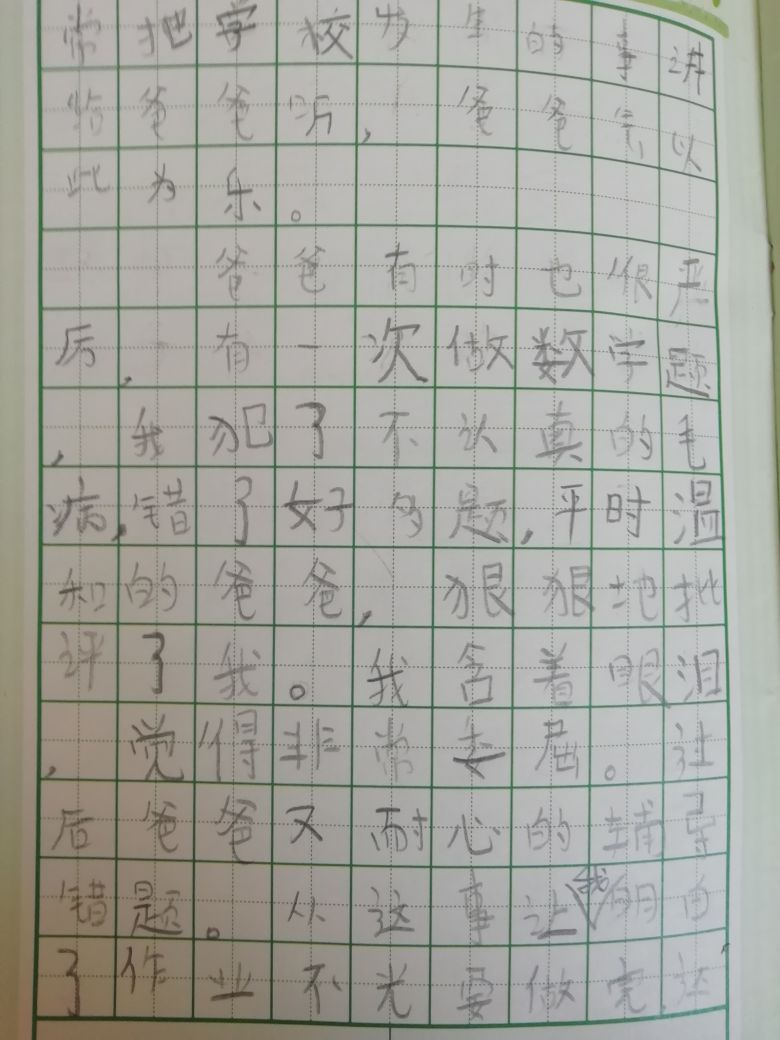 常把学校发生的事讲
给爸爸听，爸爸先以
此为乐。
爸爸有时也很严
厉，有一次做数学题
，我犯了不认真的毛
病，错了好多题，平时温
和的爸爸，狠狠地批
评了我。我含着眼泪
，觉得非常委屈。过
后爸爸又耐心的辅导
错题。从这事让我明白
了作业不光要做完，还